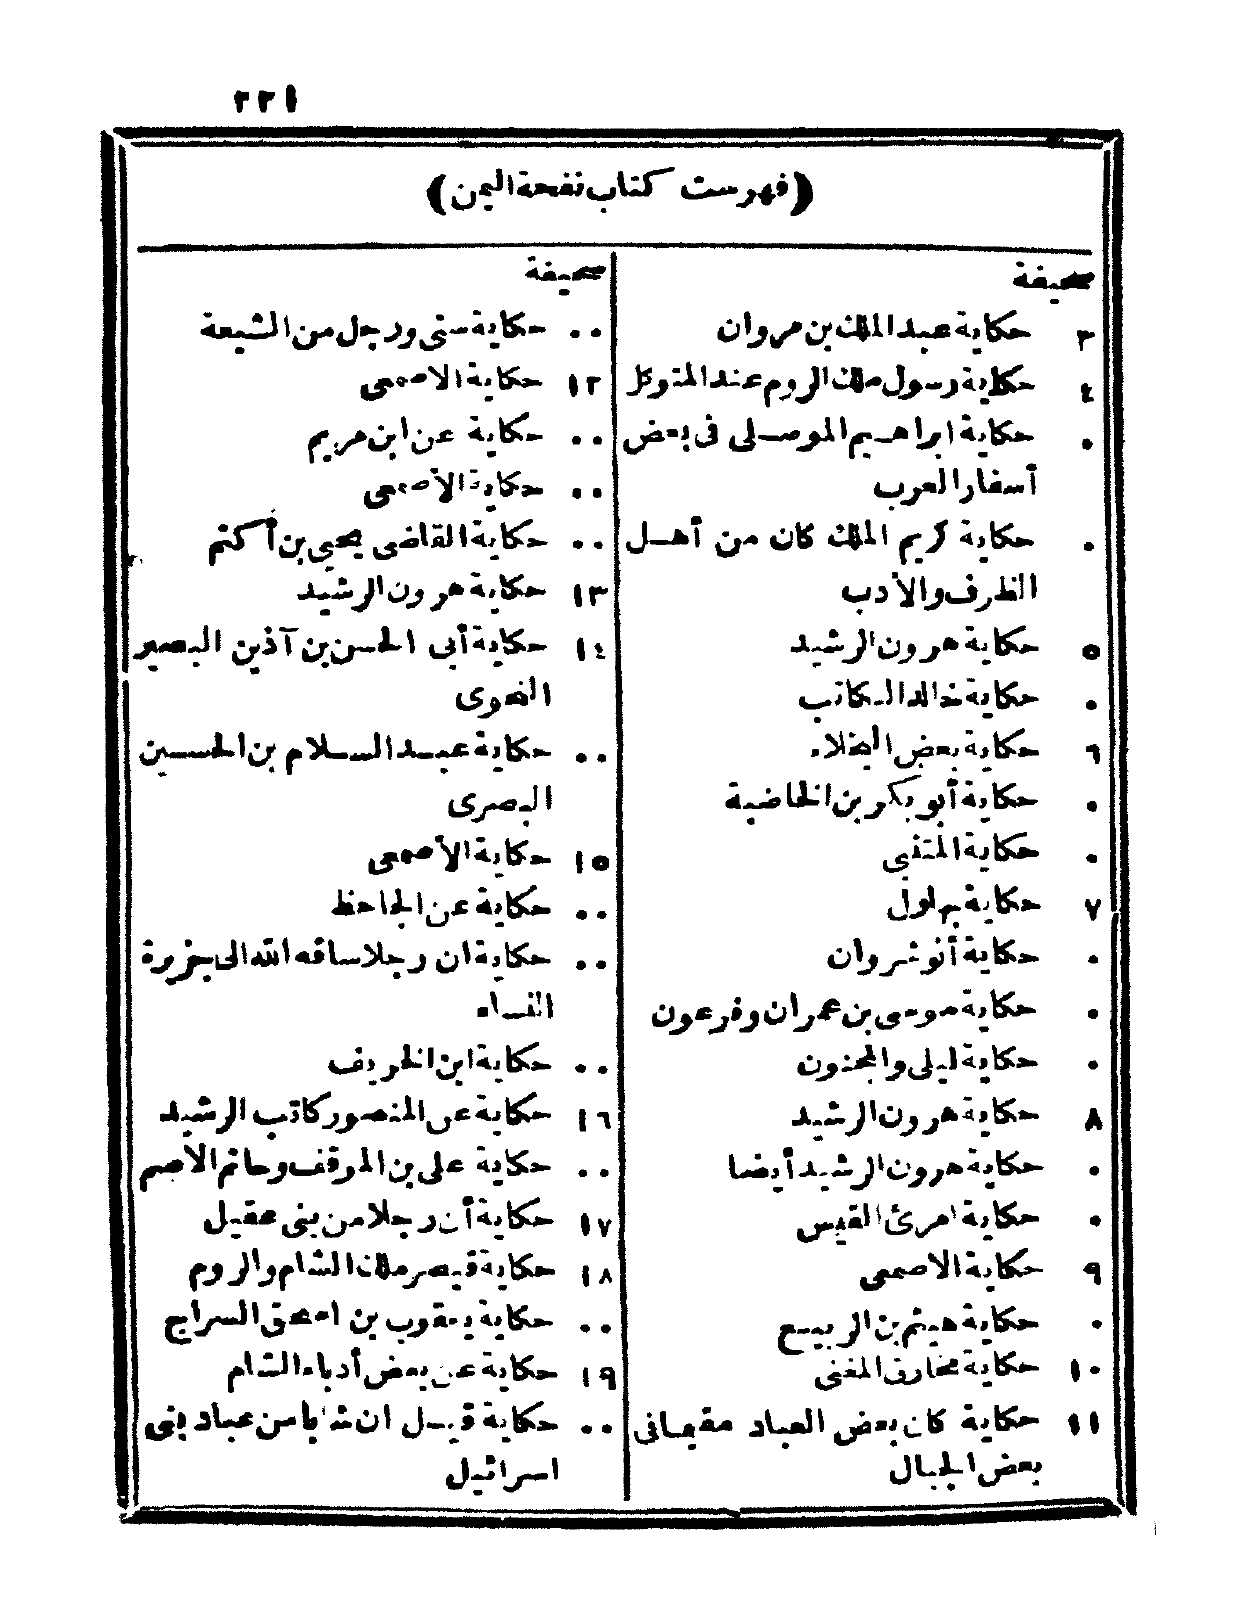 ٢٢١
(فهرست كتاب نفحة اليمن)
صحيفة
٣ حكاية عبد الملك بن مروان
٤ حكاية رسول ملك الروم عند المتوكل
٠ حكاية ابراهيم الموصلى فى بعض
أسفار العرب
٠ حكاية كريم الملك كان من أهل
الظرف والأدب
٥ حكاية هرون الرشيد
٠ حكاية خالد الكاتب
٦ حكاية بعض البخلاء
٠ حكاية أبو بكر بن الخاضبة
٠ حكاية المتنبى
٧ حكاية بهلول
٠ حكاية أنوشروان
٠ حكاية موسى بن عمران وفرعون
٠ حكاية ليلى والمجنون
٨ حكاية هرون الرشيد
٠ حكاية هرون الرشيد أيضا
٠ حكاية امرئ القيس
٩ حكاية الاصمعى
٠ حكاية هيثم بن الربيع
١٠ حكاية مخارق المغنى
١١ حكاية كان بعض العباد مقيما فى
بعض الجبال
صحيفة
٠٠ حكاية سنى ورجل من الشيعة
١٢ حكاية الاصمعى
٠٠ حكاية عن ابن مريم
٠٠ حكاية الأصمعى
٠٠ حكاية القاضى يحيى بن أكثم
١٣ حكاية هرون الرشيد
١٤ حكاية أبى الحسن بن آذين البصير
النحوى
٠٠ حكاية عبد السلام بن الحسين
البصرى
١٥ حكاية الأصمعى
٠٠ حكاية عن الجاحظ
٠٠ حكاية ان رجلا ساقه الله الى جزيرة
النساء
٠٠ حكاية ابن الخريف
١٦ حكاية عن المنصور كاتب الرشيد
٠٠ حكاية على بن الموقف وحاتم الأصم
١٧ حكاية أن رجلا من بنى عقيل
١٨ حكاية قيصر ملك الشام والروم
٠٠ حكاية يعقوب بن اسحق السراج
١٩ حكاية عن بعض أدباء الشام
٠٠ حكاية قيل ان شابا من عباد بنى
اسرائيل